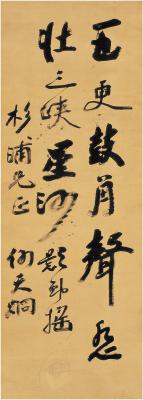 五更鼓角聲悲
壯三峽星河影動搖
杉浦先生正
何天炯